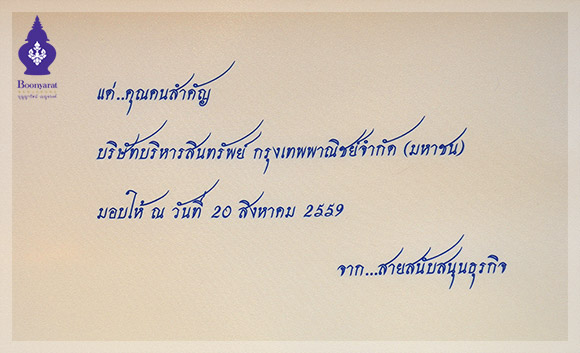 Boonyarat
แด่..คุณคนสำคัญ
บริษัทบริหารสินทรัพย์ กรุงเทพพาณิชย์จำกัด (มหาชน)
มอบให้ ณ วันที่ 20 สิงหาคม 2559
จาก...สายสนับสนุนธุรกิจ